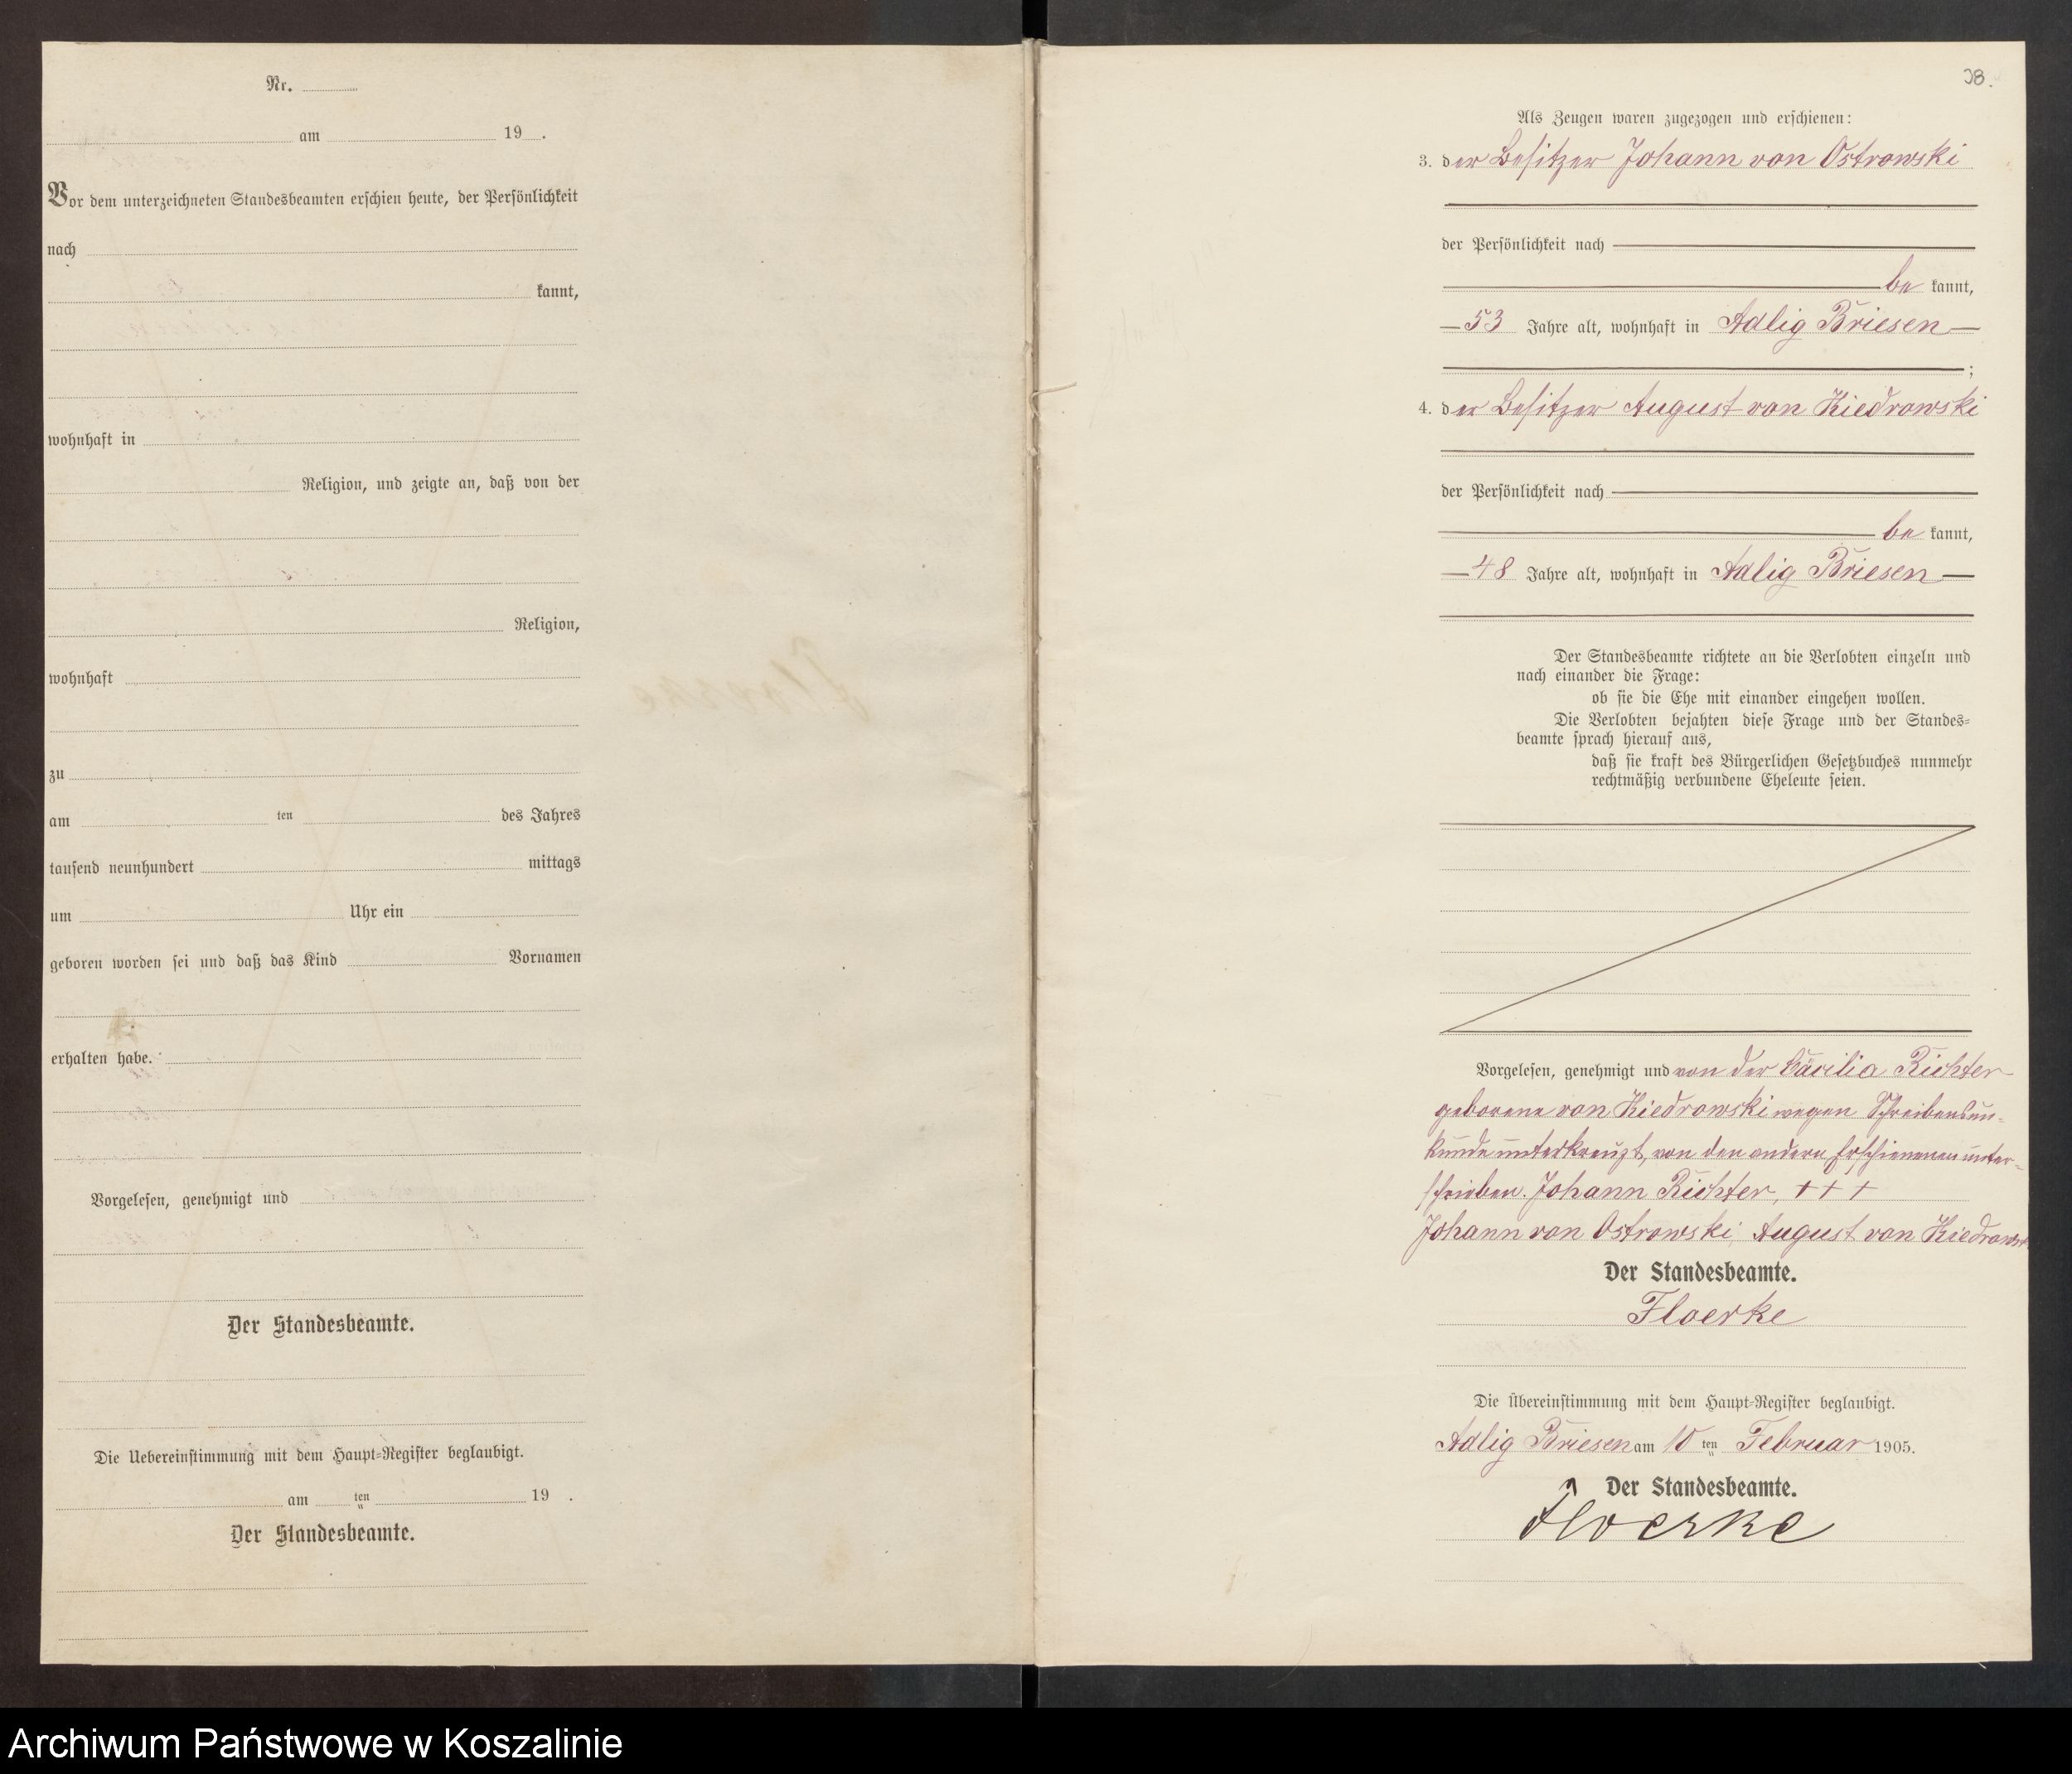 Nr.
am 19 .
Vor dem unterzeichneten Standesbeamten erschien heute, der Persönlichkeit
nach
kannt,
wohnhaft in
Religion, und zeigte an, daß von der
Religion,
wohnhaft
zu
am ten des Jahres
tausend neunhundert mittags
um Uhr ein
geboren worden sei und daß das Kind Vornamen
erhalten habe.
Vorgelesen, genehmigt und
Der Standesbeamte.
Die Uebereinstimmung mit dem Haupt-Register beglaubigt.
am ten 19 .
Der Standesbeamte.
38.
Als Zeugen waren zugezogen und erschienen:
3. der Besitzer Johann von Ostrowski
der Persönlichkeit nach
be kannt,
53 Jahre alt, wohnhaft in Adlig Briesen
;
4. der Besitzer August von Kiedrowski
der Persönlichkeit nach
be kannt,
48 Jahre alt, wohnhaft in Adlig Briesen
Der Standesbeamte richtete an die Verlobten einzeln und
nach einander die Frage:
ob sie die Ehe mit einander eingehen wollen.
Die Verlobten bejahten diese Frage und der Standes=
beamte sprach hierauf aus,
daß sie kraft des Bürgerlichen Gesetzbuches nunmehr
rechtmäßig verbundene Eheleute seien.
Vorgelesen, genehmigt und von der Cäcilia Richter
geborene von Kiedrowski wegen Schreibensun=
kunde unterkreuzt, von den andern Erschienenen unter=
schrieben. Johann Richter, + + +
Johann von Ostrowski, August von Kiedrowski
Der Standesbeamte.
Floerke
Die Übereinstimmung mit dem Haupt=Register beglaubigt.
Adlig Briesen am 10 ten Februar 1905.
Der Standesbeamte.
Floerke
Archiwum Państwowe w Koszalinie